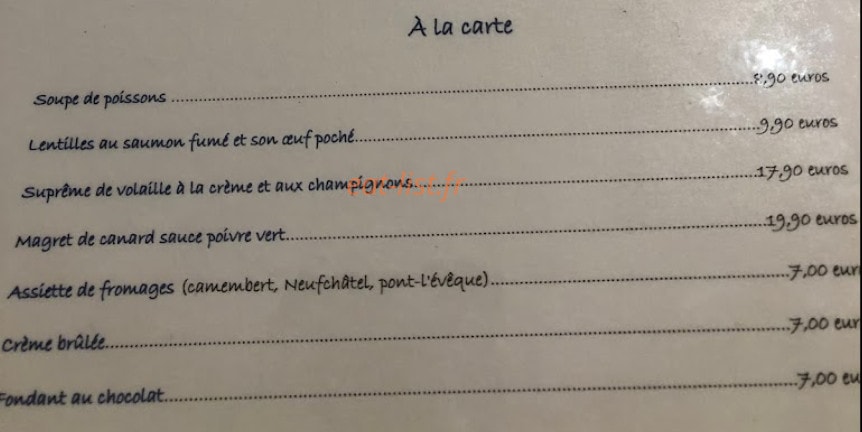 À la carte
Soupe de poissons ........ 8,90 euros
Lentilles au saumon fumé et son œuf poché ........ 9,90 euros
Suprême de volaille à la crème et aux champignons ........ 17,90 euros
Magret de canard sauce poivre vert ........ 19,90 euros
Assiette de fromages (camembert, Neufchâtel, pont-l'évêque) ........ 7,00 eur
Crème brûlée ........ 7,00 eur
Fondant au chocolat ........ 7,00 eu